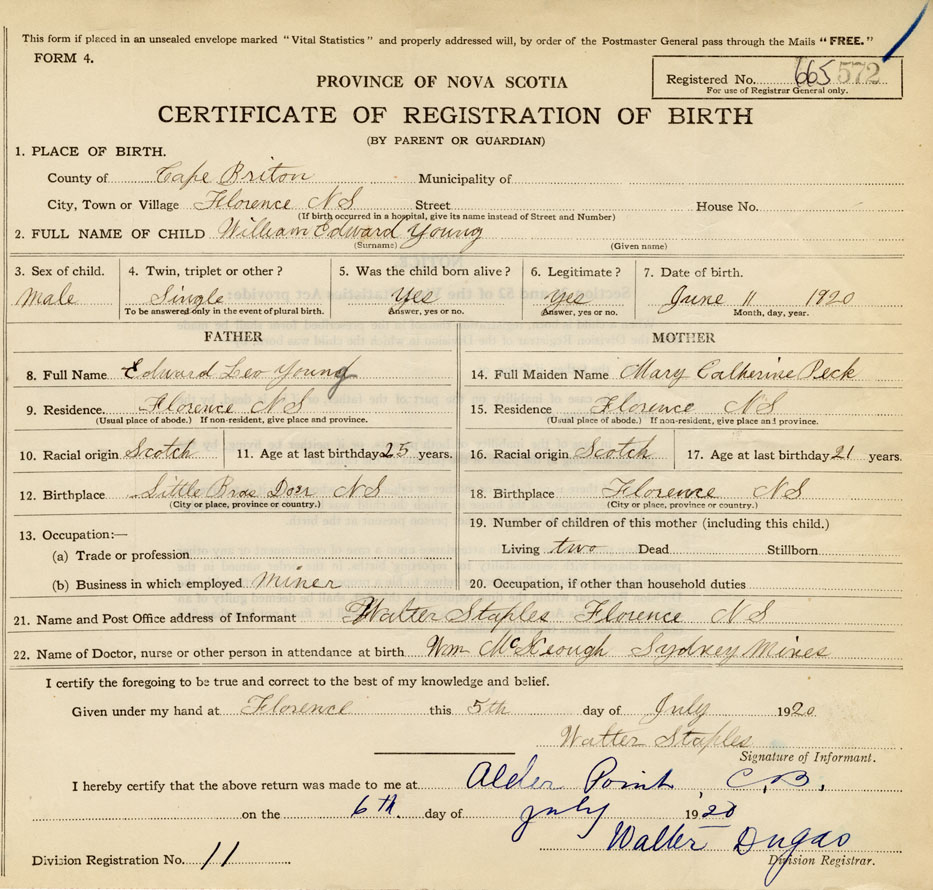 This form if placed in an unsealed envelope marked "Vital Statistics" and properly addressed will, by order of the Postmaster General pass through the Mails "FREE."
FORM 4.
Registered No. 665 572
For use of Registrar General only.
PROVINCE OF NOVA SCOTIA
CERTIFICATE OF REGISTRATION OF BIRTH
(BY PARENT OR GUARDIAN)
1. PLACE OF BIRTH.
County of Cape Briton Municipality of
City, Town or Village Florence NS Street House No.
(If birth occurred in a hospital, give its name instead of Street and Number)
2. FULL NAME OF CHILD William Edward Young
(Surname) (Given name)
3. Sex of child. 4. Twin, triplet or other? 5. Was the child born alive? 6. Legitimate? 7. Date of birth.
Male Single Yes Yes June 11 1920
To be answered only in the event of plural birth. Answer, yes or no. Answer, yes or no. Month, day, year.
FATHER MOTHER
8. Full Name Edward Leo Young 14. Full Maiden Name Mary Catherine Peck
9. Residence. Florence NS 15. Residence Florence NS
(Usual place of abode.) If non-resident, give place and province. (Usual place of abode.) If non-resident, give place and province.
10. Racial origin Scotch 11. Age at last birthday 25 years. 16. Racial origin Scotch 17. Age at last birthday 21 years.
12. Birthplace Little Brae Dorr NS 18. Birthplace Florence NS
(City or place, province or country.) (City or place, province or country.)
19. Number of children of this mother (including this child.)
13. Occupation:—
(a) Trade or profession. Living two Dead Stillborn
(b) Business in which employed Miner 20. Occupation, if other than household duties
21. Name and Post Office address of Informant Walter Staples Florence NS
22. Name of Doctor, nurse or other person in attendance at birth Wm McKeough Sydney Mines
I certify the foregoing to be true and correct to the best of my knowledge and belief.
Given under my hand at Florence this 5th day of July 1920
Walter Staples
Signature of Informant.
I hereby certify that the above return was made to me at Alder Point, C.B.
on the 6th. day of July 1920
Walter Dugas
Division Registration No. 11 Division Registrar.